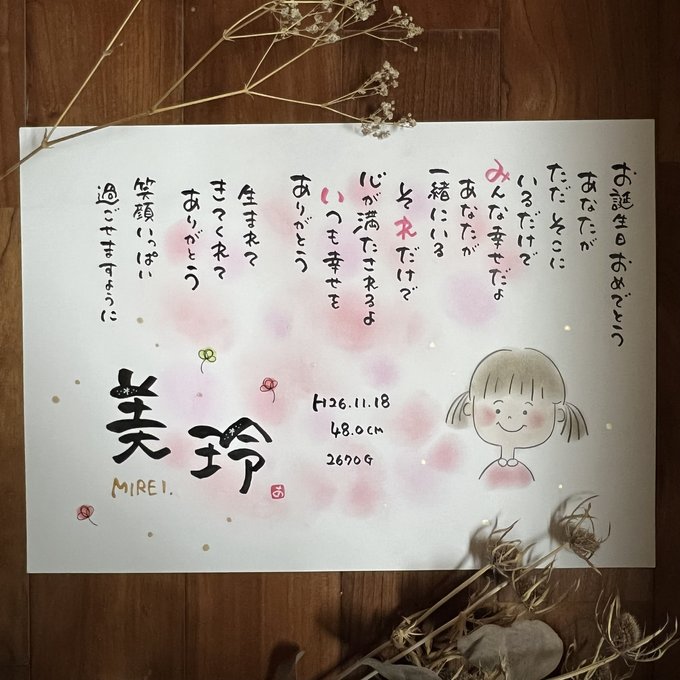 お誕生日おめでとう
あなたが
ただ そこに
いるだけで
みんな幸せだよ
あなたが
一緒にいる
それだけで
心が満たされるよ
いつも幸せを
ありがとう
生まれて
きてくれて
ありがとう
笑顔いっぱい
過ごせますように
H26.11.18
48.0cm
2670G
美玲
MIREI.
お